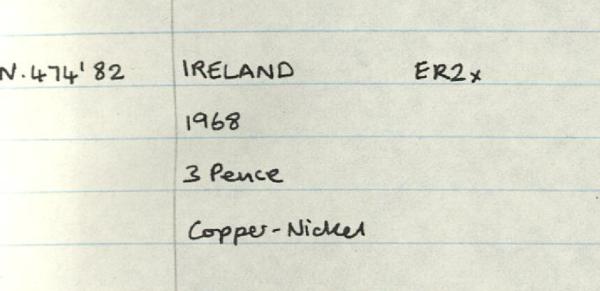 N.474'82 IRELAND ER2x
1968
3 Pence
Copper-Nickel